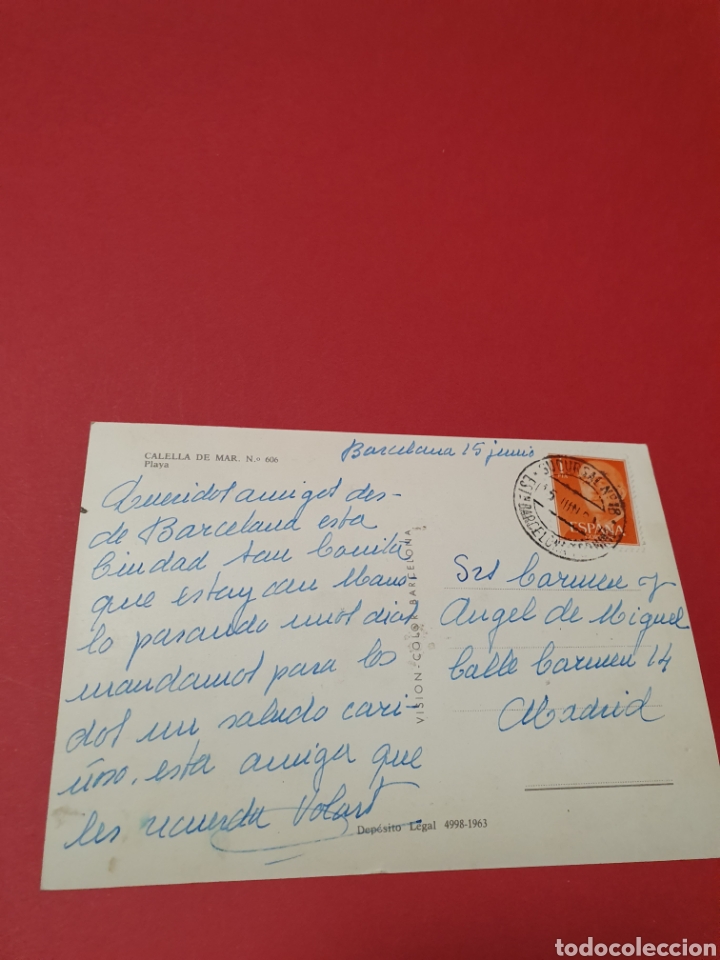 CALELLA DE MAR. N.º 606
Playa
Barcelona 15 junio
Queridos amigos des-
de Barcelona esta
Ciudad tan bonita
que estoy con Mano
lo pasando unos dias
mandamos para los
dos un saludo cari-
ñoso, esta amiga que
les recuerda
VISION-COLOR BARCELONA
Depósito Legal 4998-1963
SUCURSAL Nº 18
BARCELONA
ESPAÑA
Srs Carmen y
Angel de Miguel
Calle Carmen 14
Madrid
todocoleccion